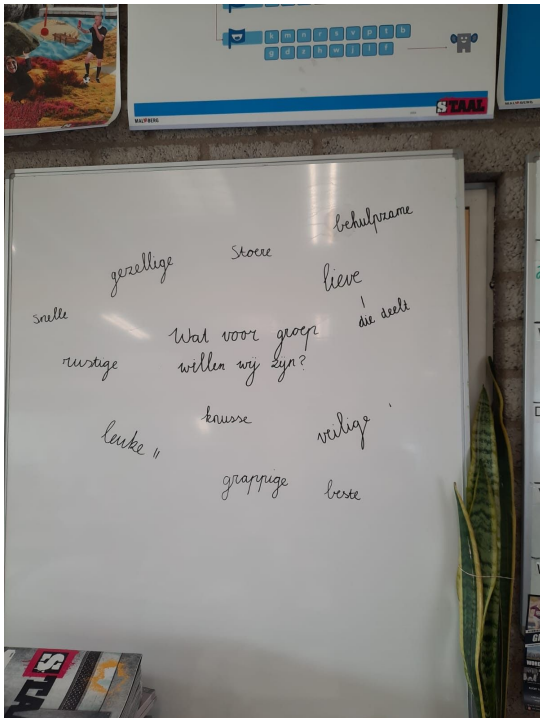 k m n r s v p t b
g d z h w j l f
MALMBERG
STAAL
behulpzame
stoere
gezellige
lieve
die deelt
snelle
Wat voor groep
willen wij zijn?
rustige
knusse
veilige
leuke "
grappige
beste
STA